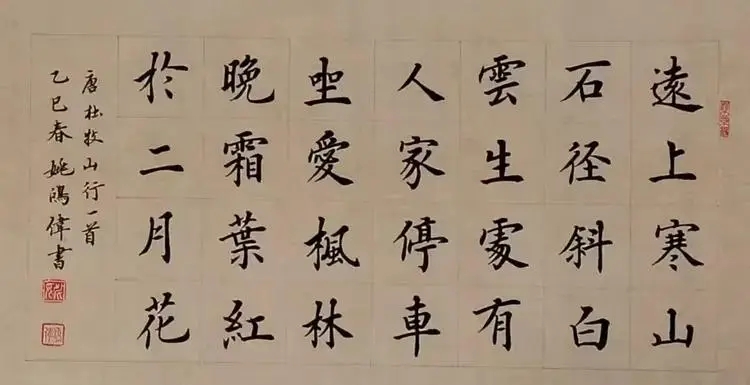 遠上寒山
石径斜白
雲生處有
人家停車
坐愛楓林
晚霜葉紅
於二月花
唐杜牧山行一首
乙巳春姚鴻偉書